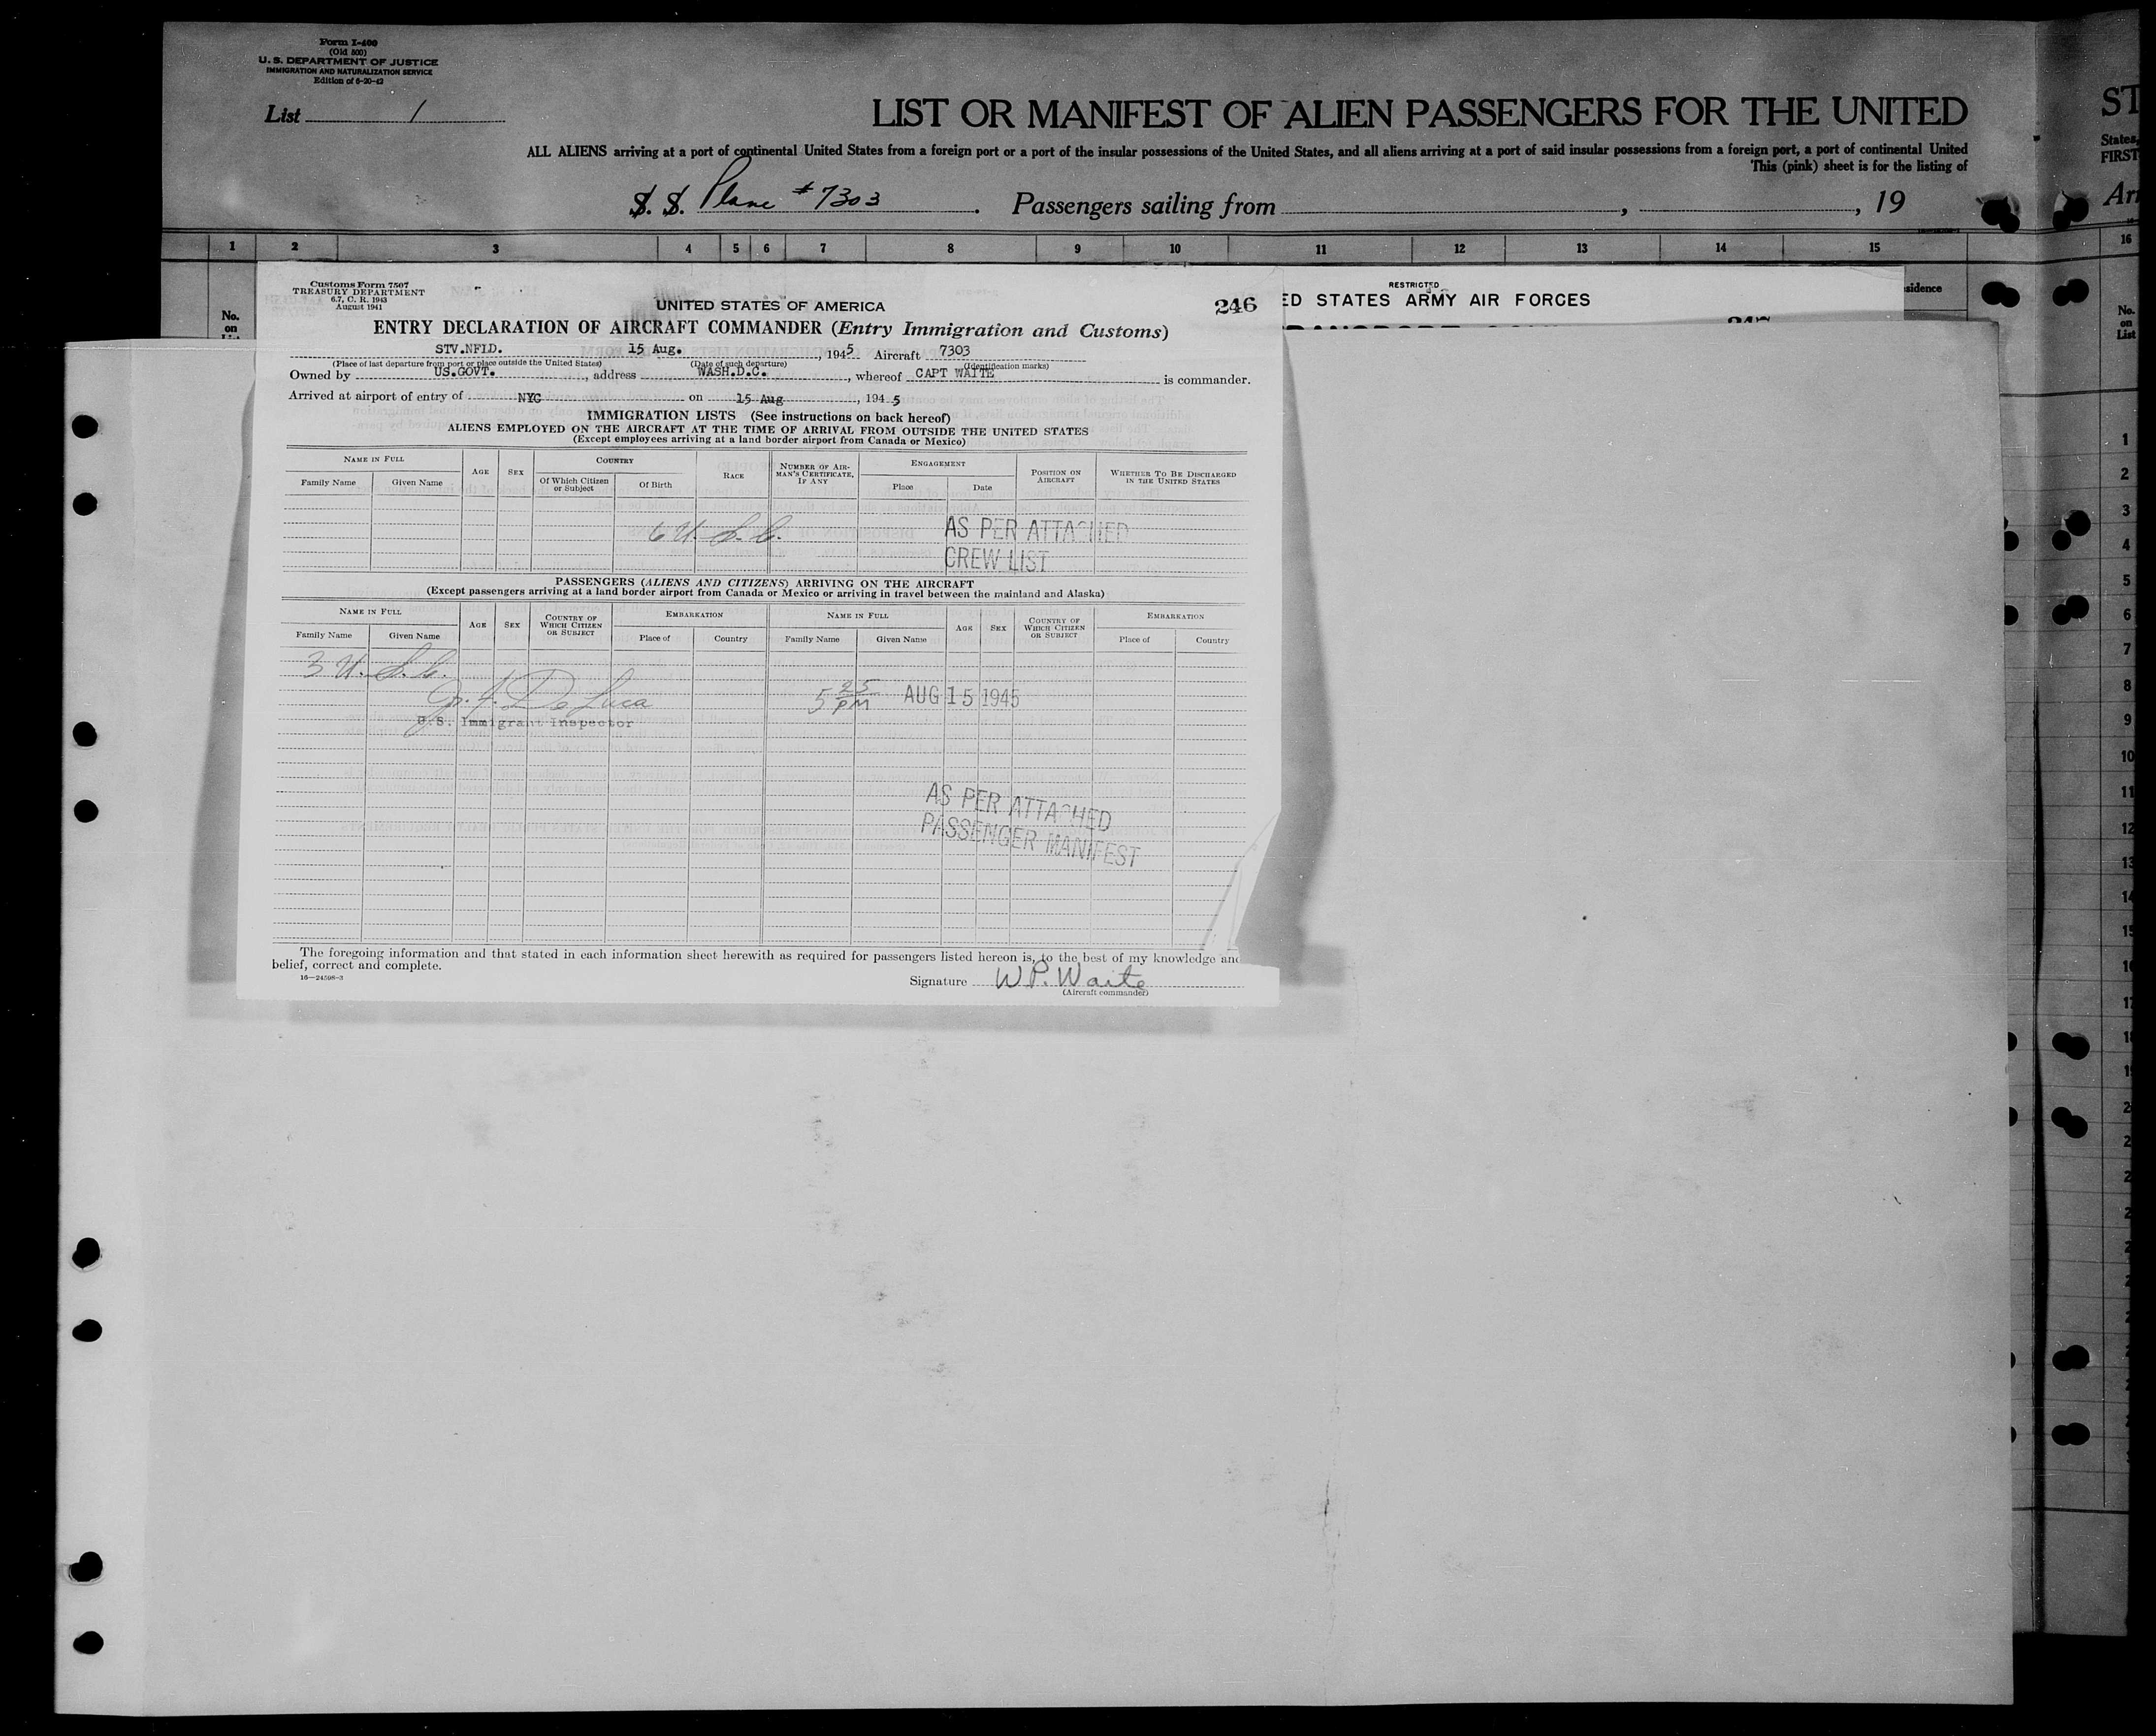 Form I-400
(Old 500)
U. S. DEPARTMENT OF JUSTICE
IMMIGRATION AND NATURALIZATION SERVICE
Edition of 6-20-42
List 1
LIST OR MANIFEST OF ALIEN PASSENGERS FOR THE UNITED
ST
ALL ALIENS arriving at a port of continental United States from a foreign port or a port of the insular possessions of the United States, and all aliens arriving at a port of said insular possessions from a foreign port, a port of continental United
States,
This (pink) sheet is for the listing of
FIRST
S. S. Plane #7303 . Passengers sailing from , , 19
Arr
1 2 3 4 5 6 7 8 9 10 11 12 13 14 15 16
No.
on
sidence
No.
on
List
RESTRICTED
ED STATES ARMY AIR FORCES
Customs Form 7507
TREASURY DEPARTMENT
6.7, C. R. 1943
August 1941
UNITED STATES OF AMERICA
246
ENTRY DECLARATION OF AIRCRAFT COMMANDER (Entry Immigration and Customs)
STV.NFLD. 15 Aug. , 1945 Aircraft 7303
(Place of last departure from port or place outside the United States) (Date of such departure) (Identification marks)
Owned by US.GOVT. , address WASH.D.C. , whereof CAPT WAITE is commander.
Arrived at airport of entry of NYC on 15 Aug , 1945
IMMIGRATION LISTS (See instructions on back hereof)
ALIENS EMPLOYED ON THE AIRCRAFT AT THE TIME OF ARRIVAL FROM OUTSIDE THE UNITED STATES
(Except employees arriving at a land border airport from Canada or Mexico)
NAME IN FULL AGE SEX COUNTRY RACE NUMBER OF AIRMAN'S CERTIFICATE, IF ANY ENGAGEMENT POSITION ON AIRCRAFT WHETHER TO BE DISCHARGED IN THE UNITED STATES
Family Name Given Name Of Which Citizen or Subject Of Birth Place Date
6 U. S. C. AS PER ATTACHED
CREW LIST
PASSENGERS (ALIENS AND CITIZENS) ARRIVING ON THE AIRCRAFT
(Except passengers arriving at a land border airport from Canada or Mexico or arriving in travel between the mainland and Alaska)
NAME IN FULL AGE SEX COUNTRY OF WHICH CITIZEN OR SUBJECT EMBARKATION NAME IN FULL AGE SEX COUNTRY OF WHICH CITIZEN OR SUBJECT EMBARKATION
Family Name Given Name Place of Country Family Name Given Name Place of Country
3 U. S. C.
De Luca 5 25 PM AUG 15 1945
U.S. Immigrant Inspector
AS PER ATTACHED
PASSENGER MANIFEST
The foregoing information and that stated in each information sheet herewith as required for passengers listed hereon is, to the best of my knowledge and
belief, correct and complete.
16—24598-3
Signature W P. Waite
(Aircraft commander)
1
2
3
4
5
6
7
8
9
10
11
12
13
14
15